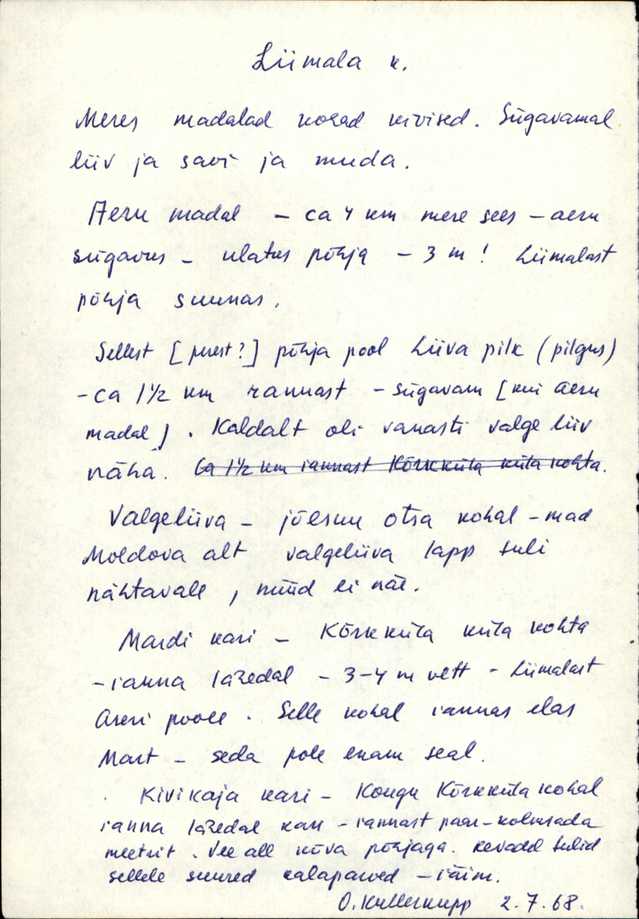 Liimala k.
Meres madalad kohad kivised. Sügavamal
liiv ja savi ja muda.
Aeru madal – ca 4 km mere sees – aeru
sügavus – ulatus põhja – 3 m! Liimalast
põhja suunas.
Sellest [ puest? ] põhja pool Liiva pilk (pilgus)
– ca 1 1/2 km rannast – sügavam [kui aeru
madal]. Kaldalt oli vanasti valge liiv
näha. Ca 1 1/2 km rannast Kõrkküla küla kohta.
Valgeliiva – jõesuu otsa kohal – mad
Moldova alt valgeliiva lapp tuli
nähtavale, nüüd ei näe.
Mardi kari – Kõrkküla küla kohta
– ranna lähedal – 3–4 m vett – Liimalast
Aseri poole. Selle kohal rannas elas
Mart – seda pole enam seal.
Kivikaja kari – Kongu Kõrkküla kohal
ranna lähedal kari – rannast paar-kolmsada
meetrit. Vee all kõva põhjaga. Kevadel tulid
sellele suured kalaparved – räim.
O. Kullerkupp 2.7.68.